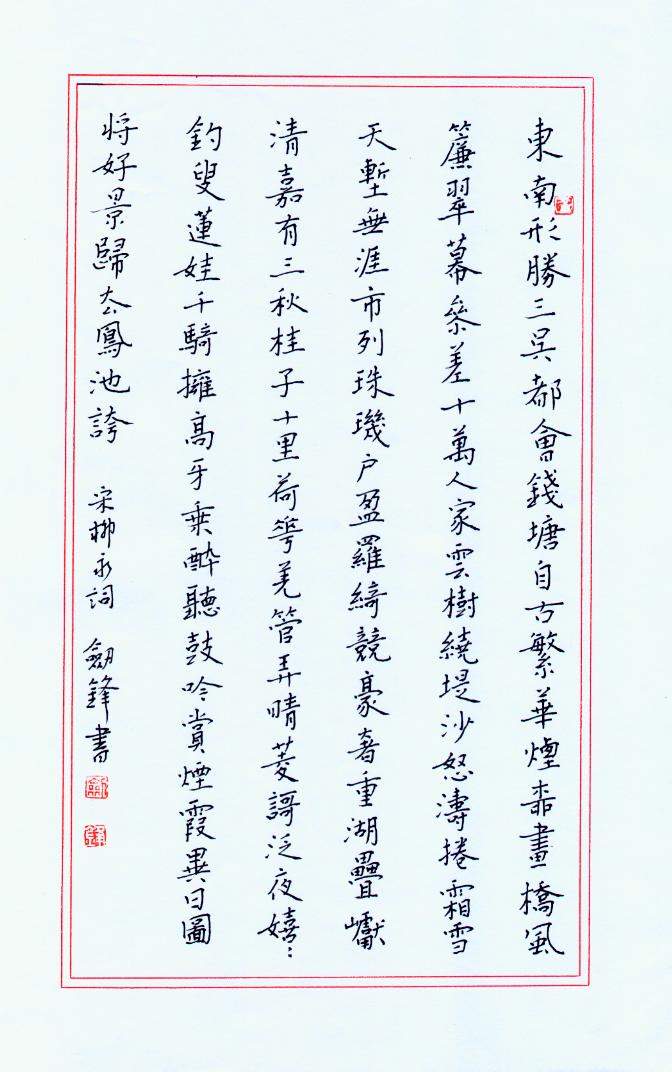 東南形勝三吳都會錢塘自古繁華煙柳畫橋風
簾翠幕參差十萬人家雲樹繞堤沙怒濤捲霜雪
天塹無涯市列珠璣户盈羅綺競豪奢重湖疊巘
清嘉有三秋桂子十里荷花羌管弄晴菱謌泛夜嬉：
釣叟蓮娃千騎擁高牙乗醉聽鼓吟賞煙霞異日圖
将好景歸去鳳池誇 宋柳永詞 劒鋒書